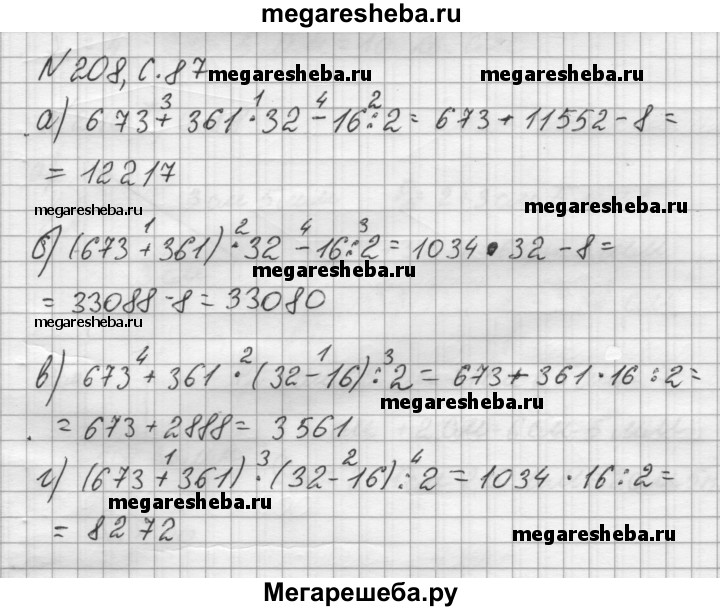 megaresheba.ru
N 208, с. 87
megaresheba.ru megaresheba.ru
3 1 4 2
а) 673 + 361 · 32 - 16 : 2 = 673 + 11552 - 8 =
= 12217
megaresheba.ru megaresheba.ru
1 2 4 3
б) (673 + 361) · 32 - 16 : 2 = 1034 · 32 - 8 =
megaresheba.ru
= 33088 - 8 = 33080
megaresheba.ru
4 2 1 3
в) 673 + 361 · (32 - 16) : 2 = 673 + 361 · 16 : 2 =
megaresheba.ru
= 673 + 2888 = 3561
1 3 2 4
г) (673 + 361) · (32 - 16) : 2 = 1034 · 16 : 2 =
megaresheba.ru
= 8272
megaresheba.ru
Мегарешеба.ру